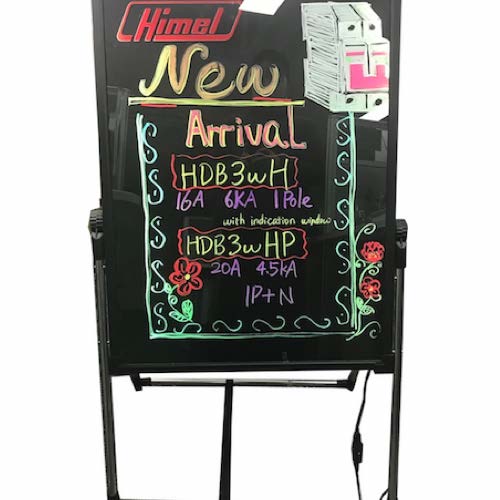 Himel
New
Arrival
HDB3wH
16A 6KA 1Pole
with indication window
HDB3wHP
20A 4.5kA
1P+N